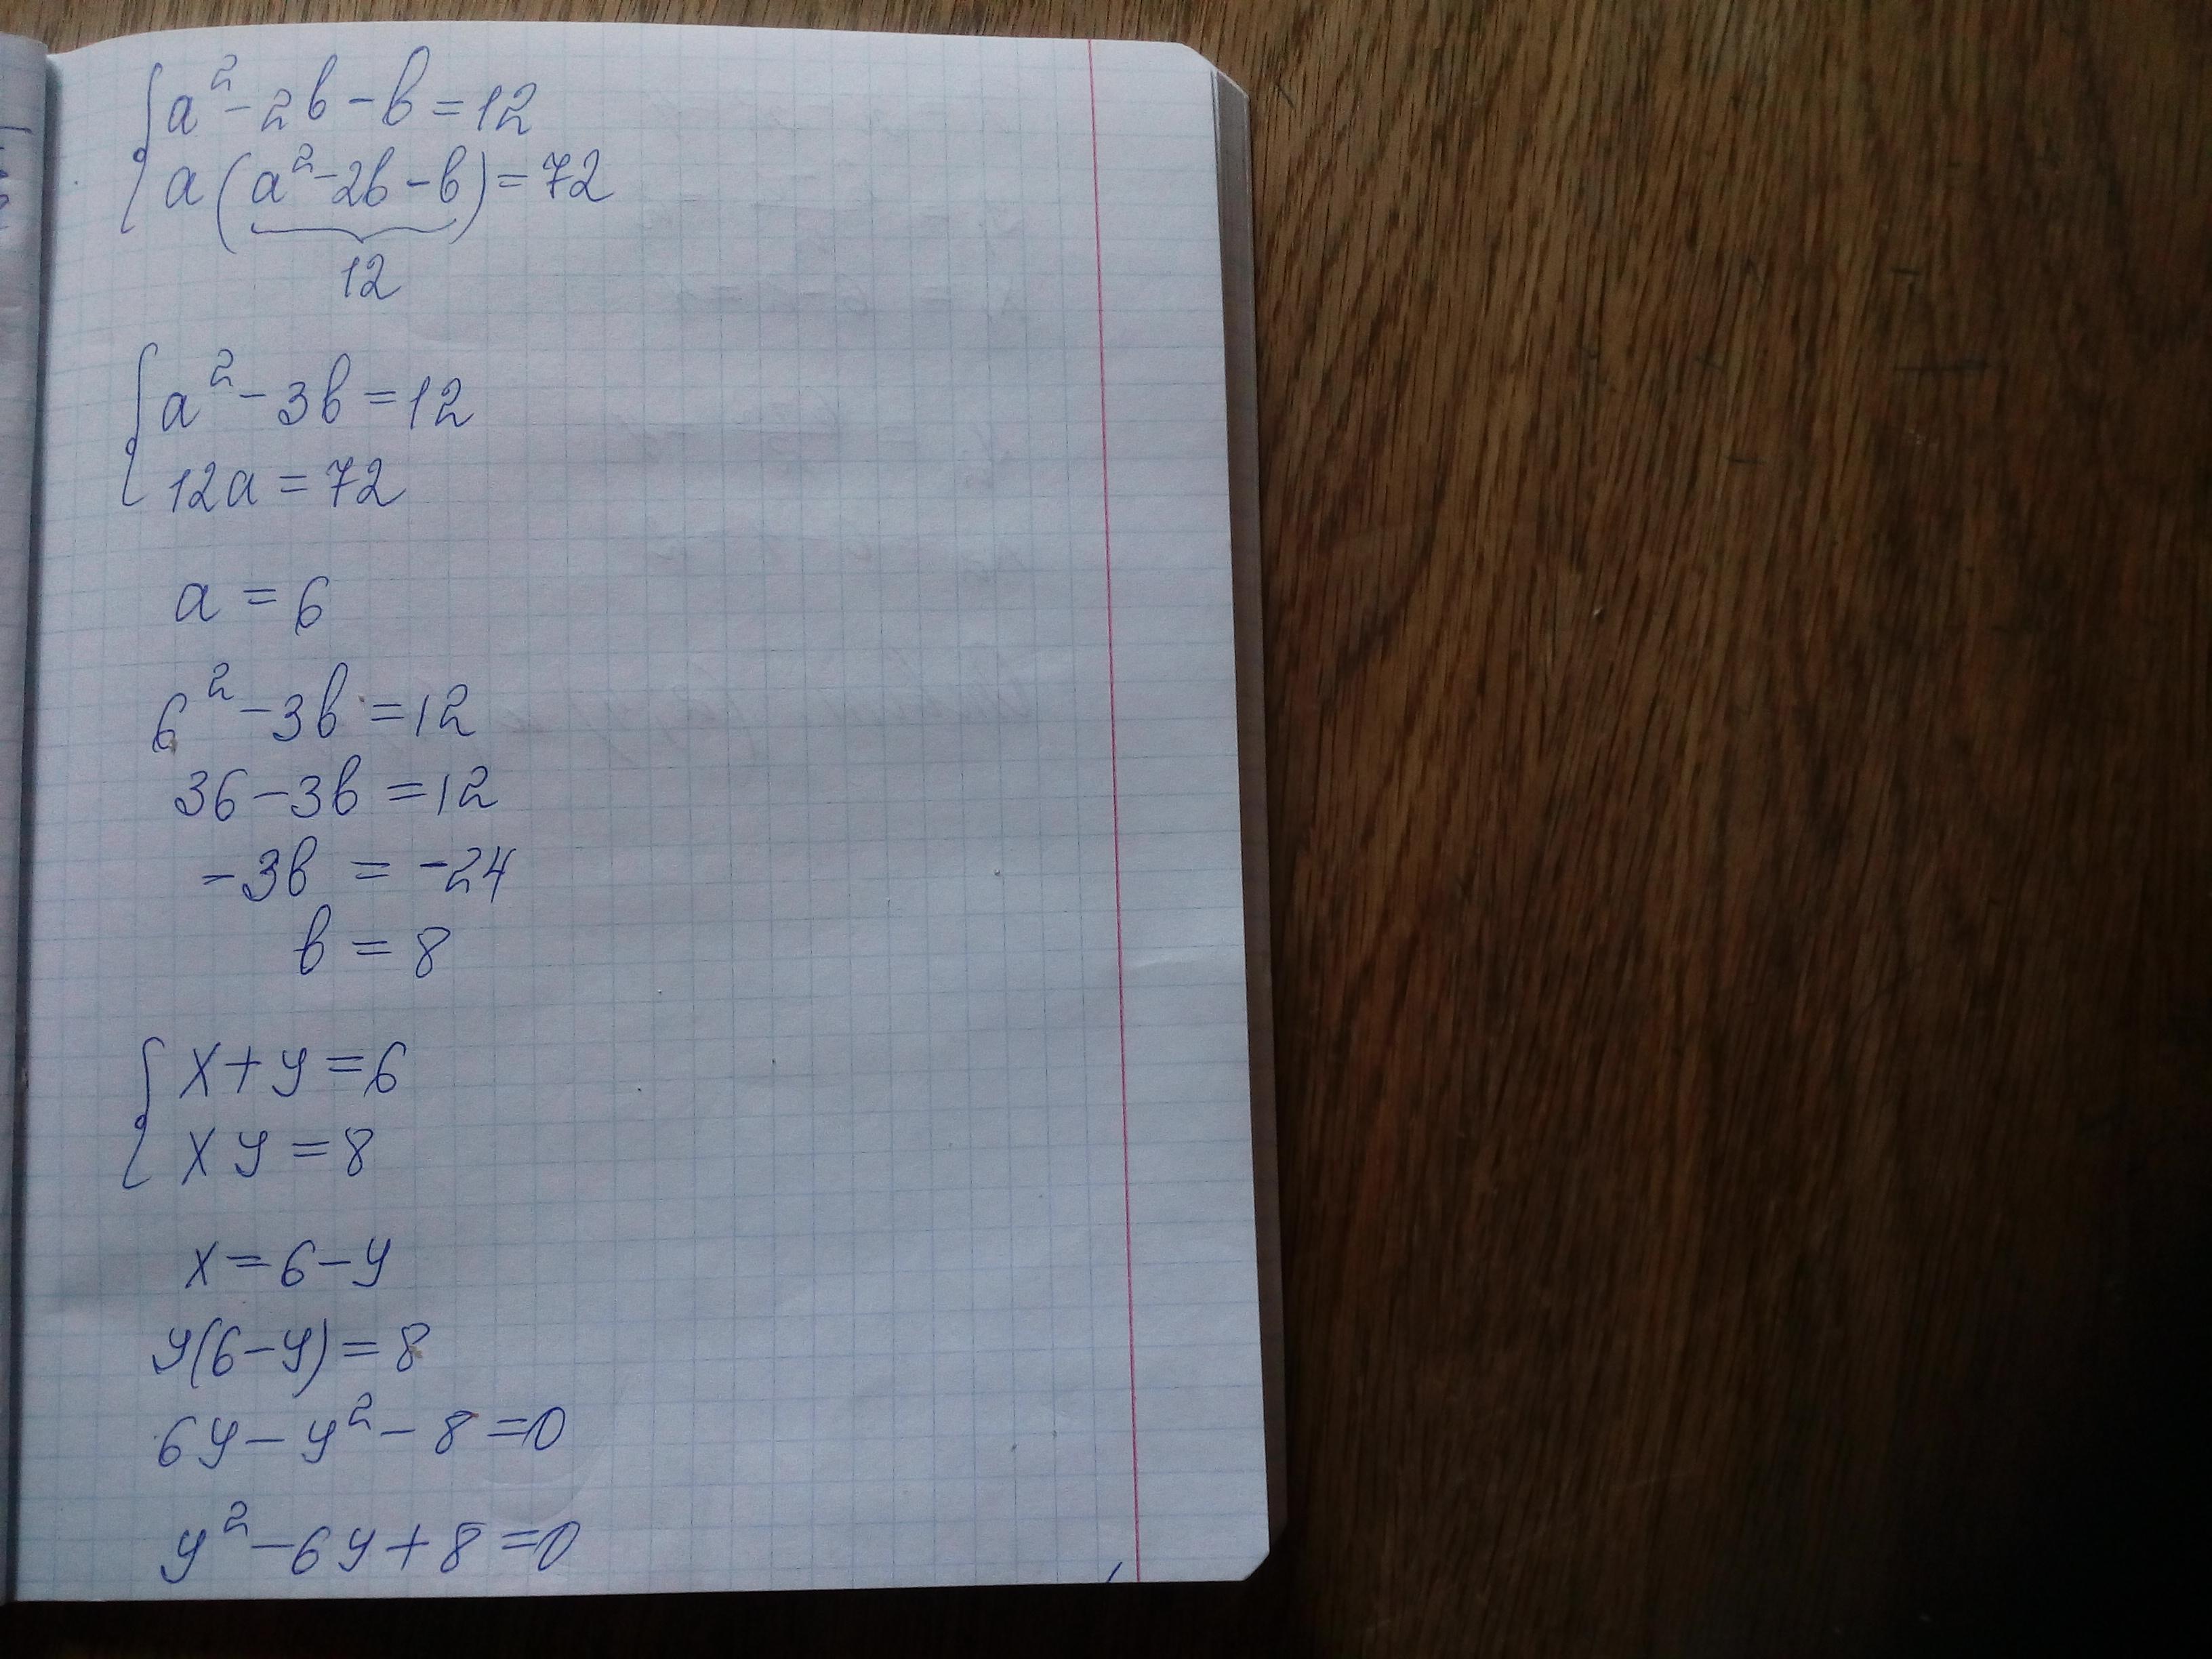 a² - 2b - b = 12
a(a² - 2b - b) = 72
12
a² - 3b = 12
12a = 72
a = 6
6² - 3b = 12
36 - 3b = 12
-3b = -24
b = 8
x + y = 6
xy = 8
x = 6 - y
y(6 - y) = 8
6y - y² - 8 = 0
y² - 6y + 8 = 0